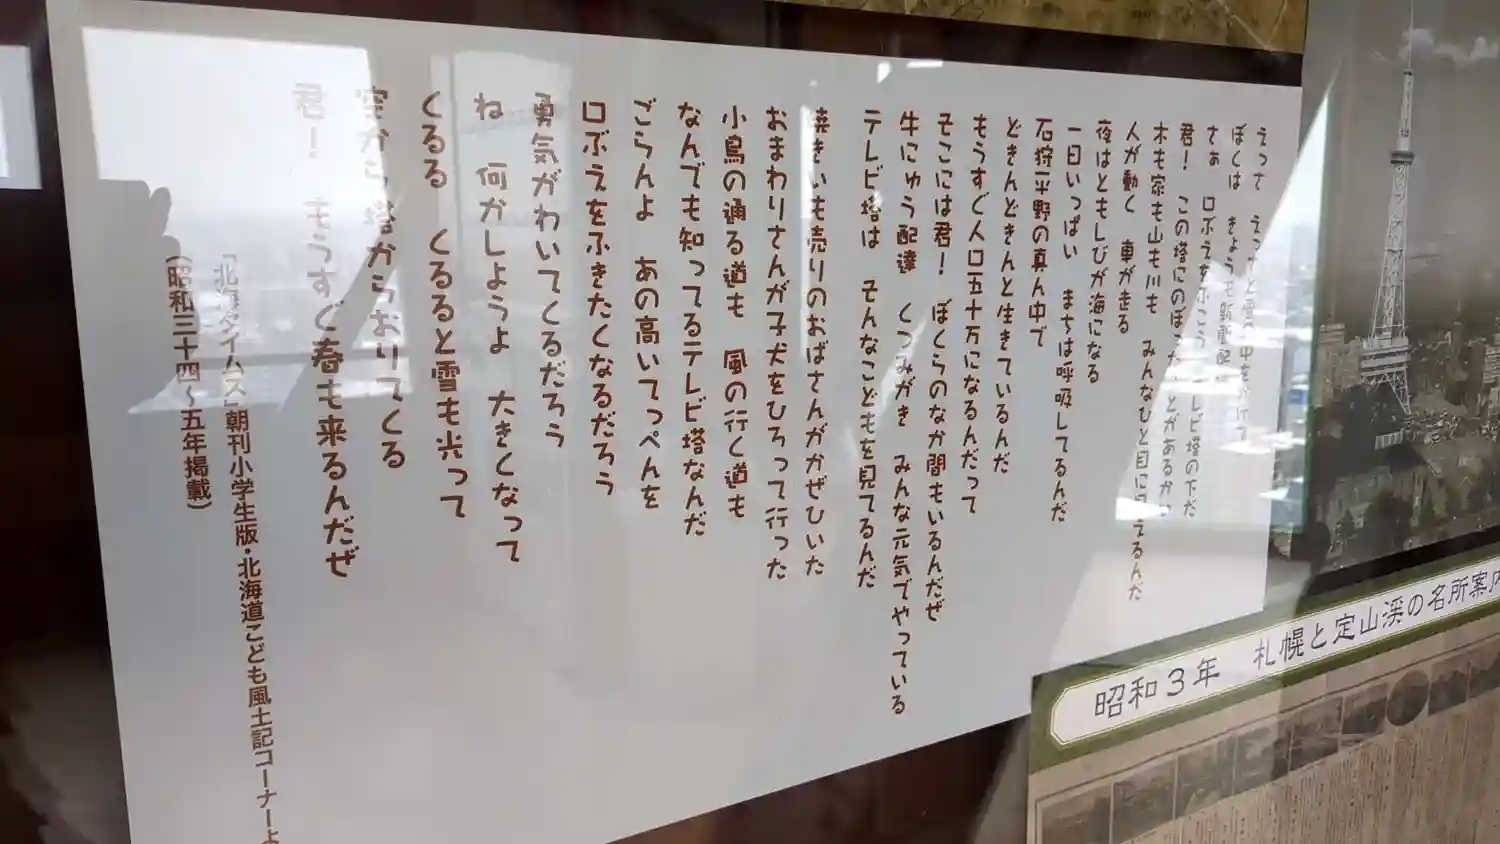 えっさ えっさと雪の中をかけて
ぼくは きょうも新聞配達
さあ 口ぶえをふこう テレビ塔の下だ
君! この塔にのぼったことがあるかい
木も家も山も川も みんなひと目に見えるんだ
人が動く 車が走る
夜はともしびが海になる
一日いっぱい まちは呼吸してるんだ
石狩平野の真ん中で
どきんどきんと生きているんだ
もうすぐ人口五十万になるんだって
そこには君! ぼくらのなか間もいるんだぜ
牛にゅう配達 くつみがき みんな元気でやっている
テレビ塔は そんなこどもを見てるんだ
焼きいも売りのおばさんがかぜひいた
おまわりさんが子犬をひろって行った
小鳥の通る道も 風の行く道も
なんでも知ってるテレビ塔なんだ
ごらんよ あの高いてっぺんを
口ぶえをふきたくなるだろう
勇気がわいてくるだろう
ね 何かしようよ 大きくなって
くるる くるると雪も光って
空から塔からおりてくる
君! もうすぐ春も来るんだぜ
「北海タイムス」朝刊小学生版・北海道こども風土記コーナーよ
(昭和三十四~五年掲載)
昭和3年 札幌と定山渓の名所案内